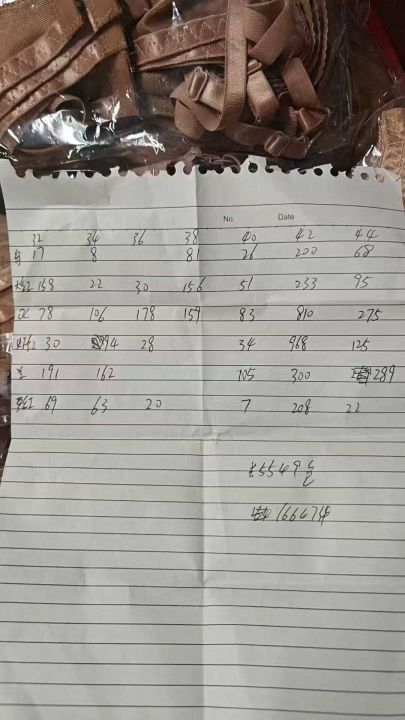 No. Date
32 34 36 38 40 42 44
17 8 81 26 200 68
158 22 30 156 51 233 95
78 106 178 159 83 810 275
30 94 28 34 968 125
191 162 105 300 289
69 63 20 7 208 22
5549
16647件